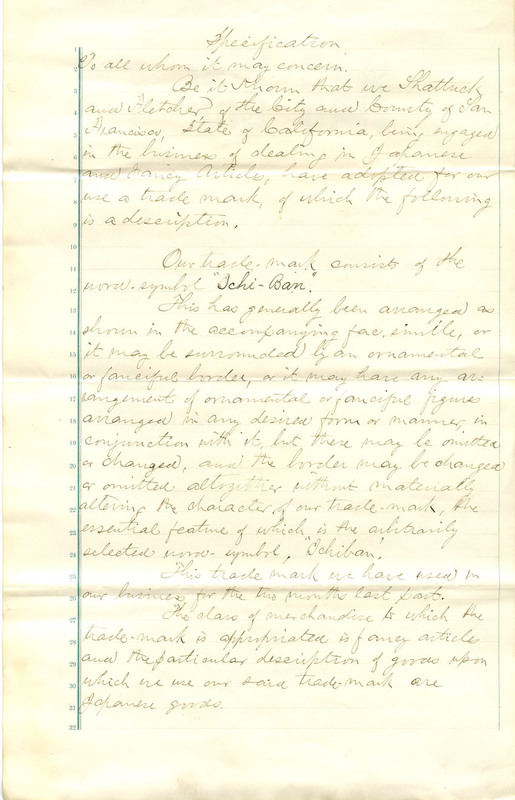 Specification.
1
2 To all whom it may concern.
3 Be it Known that we Shattuck
4 and Fletcher of the City and County of San
5 Francisco, State of California, being engaged
6 in the business of dealing in Japanese
7 and Fancy Articles, have adopted for our
8 use a trade mark, of which the following
9 is a description.
10
11 Our trade-mark consists of the
12 word-symbol "Ichi-Ban".
13 This has generally been arranged as
14 shown in the accompanying fac, simile, or
15 it may be surrounded by an ornamental
16 or fanciful border, or it may have any ar-
17 rangement of ornamental or fanciful figures
18 arranged in any desired form or manner, in
19 conjunction with it, but these may be omitted
20 or changed, and the border may be changed
21 or omitted altogether without materially
22 altering the character of our trade-mark, the
23 essential feature of which is the arbitrarily
24 selected word-symbol, "Ichiban".
25 This trade mark we have used in
26 our business for the two months last past.
27 The class of merchandise to which the
28 trade-mark is appropriated is fancy articles
29 and the particular description of goods upon
30 which we use our said trade-mark are
31 Japanese goods.
32